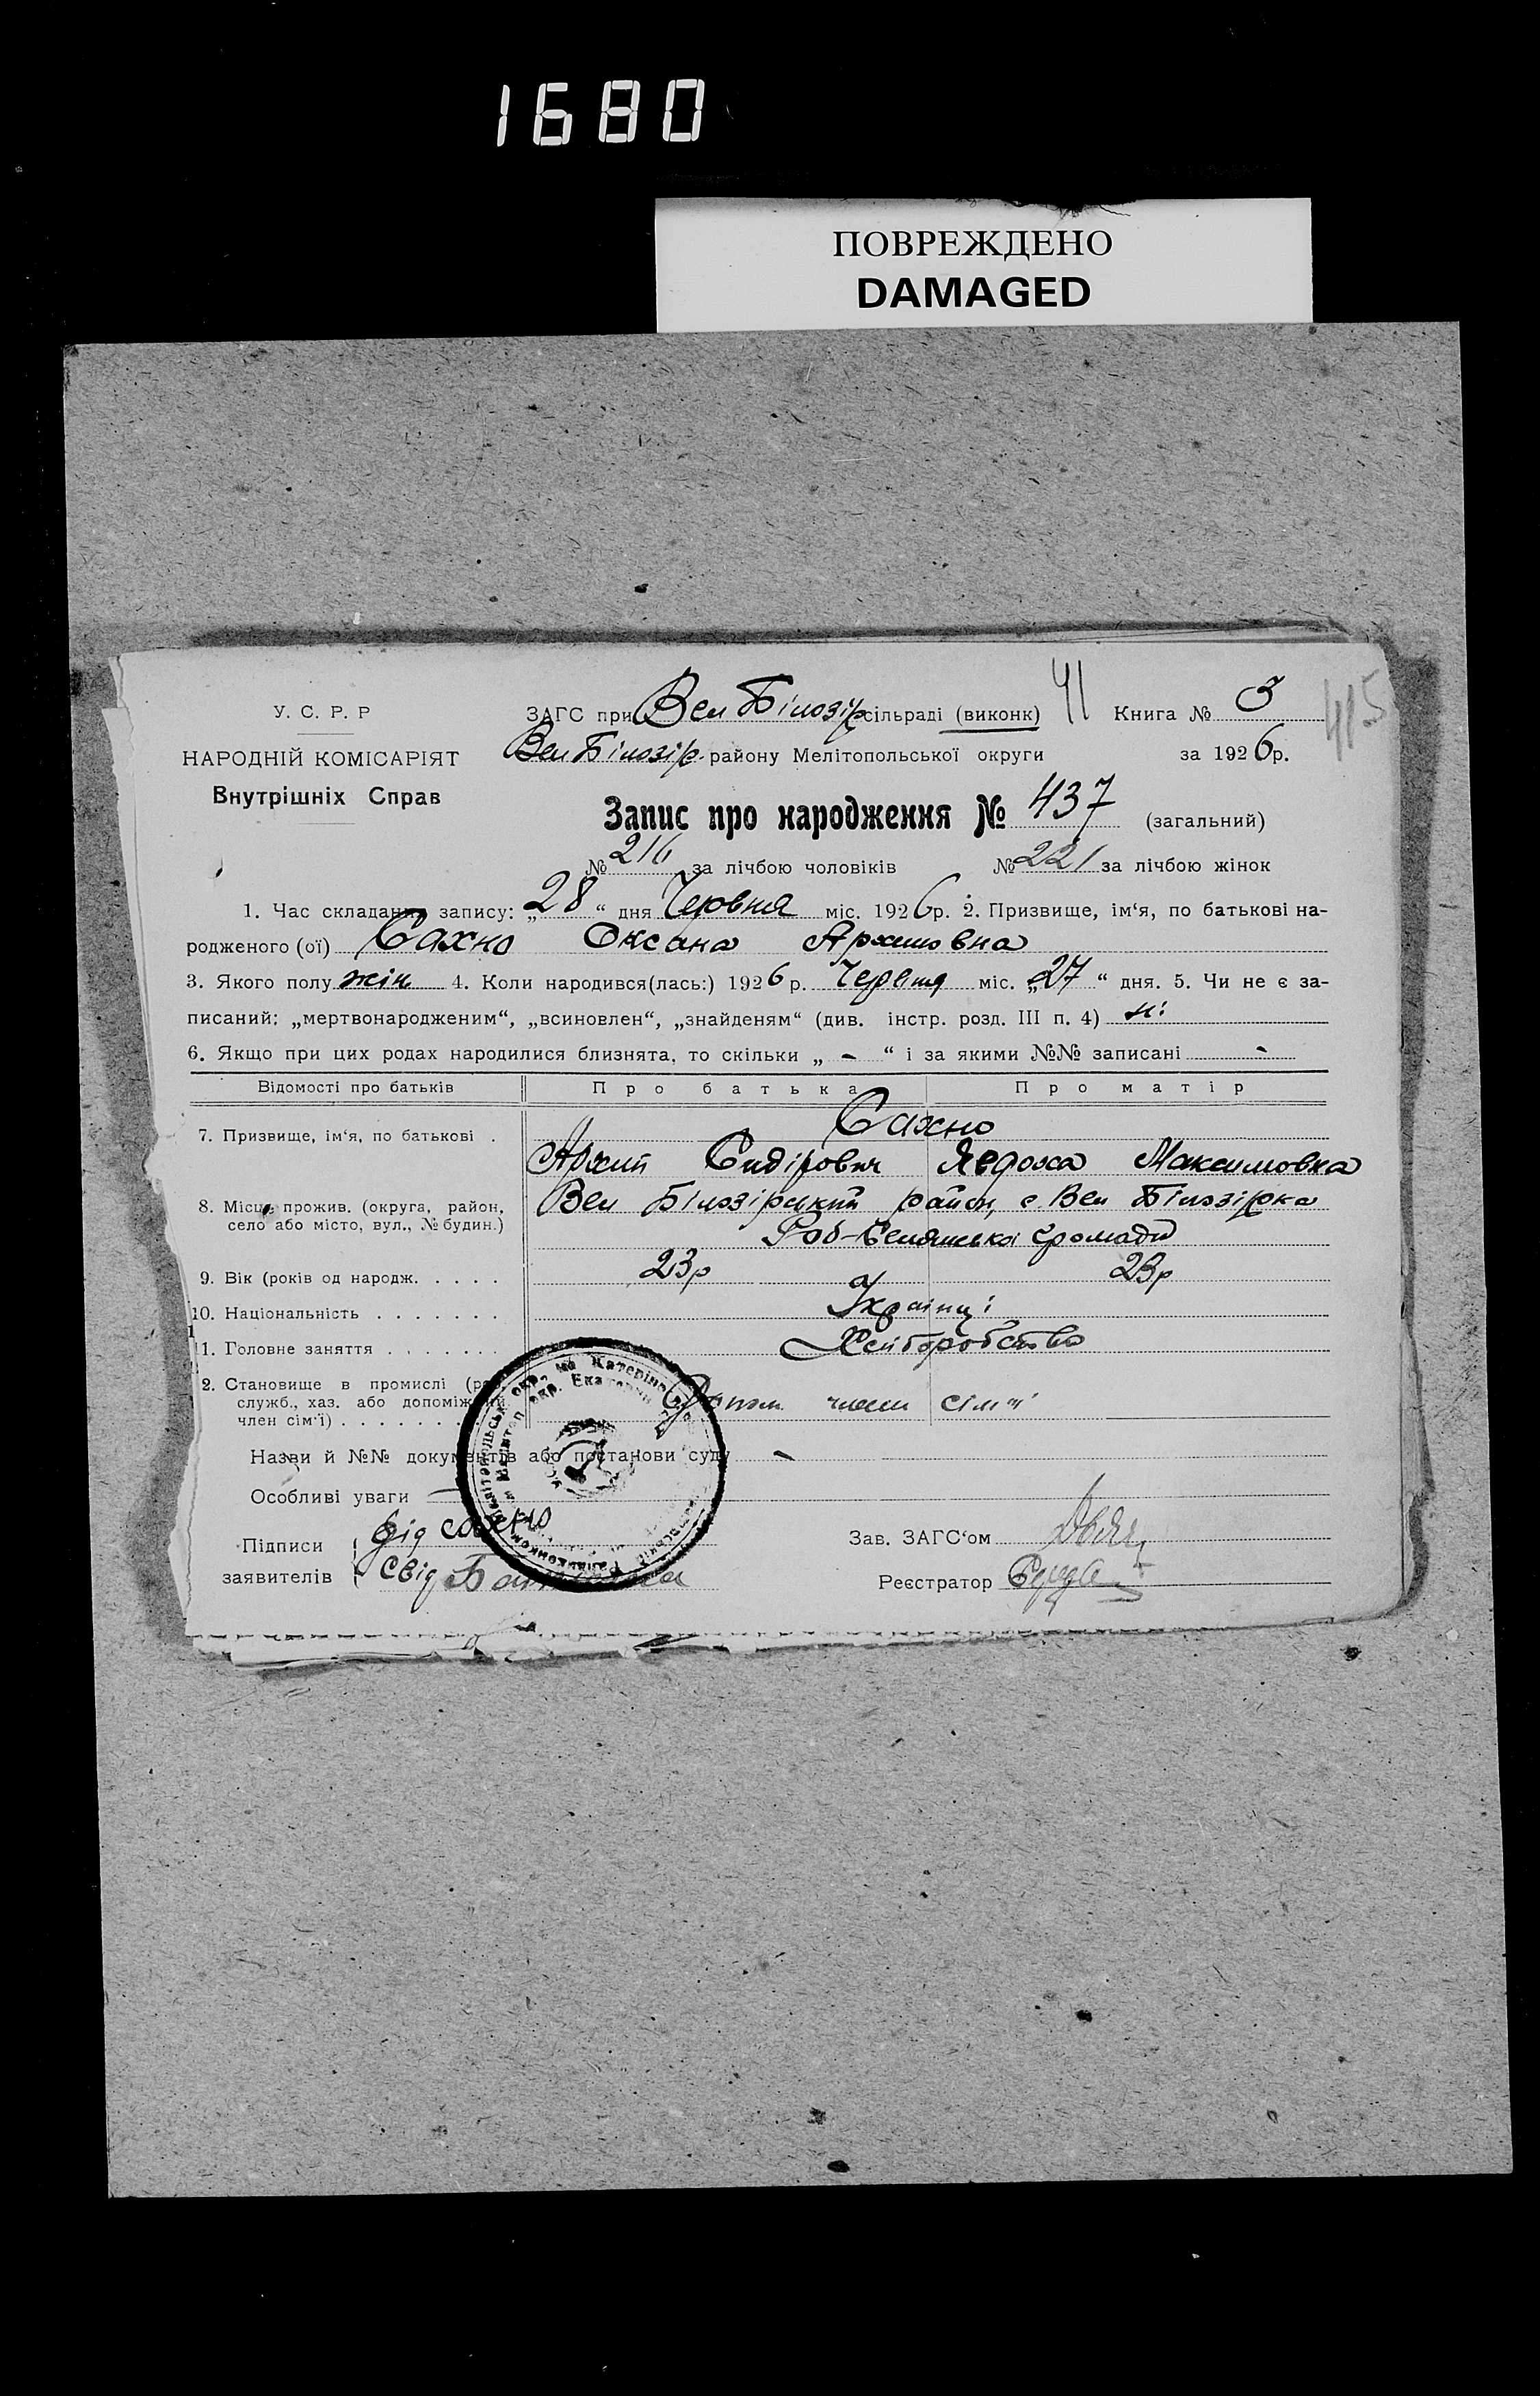 1680
ПОВРЕЖДЕНО
DAMAGED
У. С. Р. Р
НАРОДНІЙ КОМІСАРІЯТ
Внутрішніх Справ
ЗАГС при Вел Білозір сільраді (виконк) 41 Книга № 3 415
Вел Білозір. району Мелітопольської округи за 1926р.
Запис про народження № 437 (загальний)
№ 216 за лічбою чоловіків № 221 за лічбою жінок
1. Час складання запису: „28“ дня Червня міс. 1926р. 2. Призвище, ім‘я, по батькові на-
родженого (ої) Сахно Оксана Архиповна
3. Якого полу жін. 4. Коли народився(лась:) 1926 р. Червня міс. „27“ дня. 5. Чи не є за-
писаний: „мертвонародженим“, „всиновлен“, „знайденям“ (див. інстр. розд. III п. 4) ні
6. Якщо при цих родах народилися близнята, то скільки „ - “ і за якими №№ записані -
Відомості про батьків Про батька Про матір
7. Призвище, ім‘я, по батькові . Сахно
Архип Сидірович Явдоха Максимовна
8. Місце прожив. (округа, район, село або місто, вул., № будин.) Вел Білозірський район, с. Вел Білозірка
Роб-Селянська громади
9. Вік (років од народж. . . . . 23р 23р
10. Національність . . . . . . . Українці
11. Головне заняття . . . . . . . Хліборобство
2. Становище в промислі (ро
служб., хаз. або допоміжний
член сім‘ї) . . . . . . . . Допом. член сім'ї
Назви й №№ документів або постанови суду -
Особливі уваги —
Підписи заявителів від Сахно
Свід
Зав. ЗАГС‘ом
Реєстратор